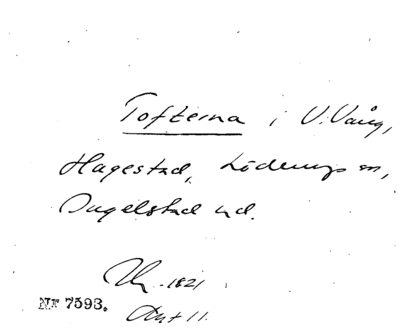 Tofterna i V. Vång,
Hagestad, Löderups sn,
Ingelstad hd.
1821
Nr 7593. Akt 11.